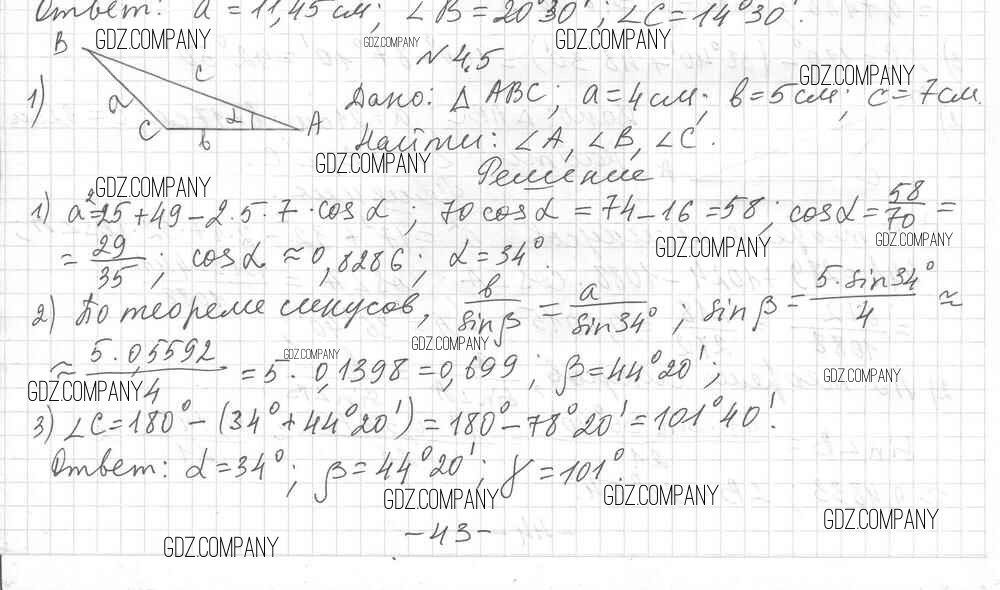 Ответ: a = 11,45 см; ∠B = 20°30'; ∠C = 14°30'.
GDZ.COMPANY GDZ.COMPANY GDZ.COMPANY
№ 4,5
GDZ.COMPANY
B c a C b α A
1) Дано: △ ABC; a = 4 см; b = 5 см; c = 7 см.
Найти: ∠A, ∠B, ∠C.
GDZ.COMPANY
Решение
GDZ.COMPANY
1) a² = 25 + 49 – 2·5·7·cos α; 70 cos α = 74 – 16 = 58; cos α = 58/70 =
GDZ.COMPANY GDZ.COMPANY
= 29/35; cos α ≈ 0,8286; α = 34°.
2) По теореме синусов, b/sin β = a/sin 34°; sin β = 5·sin 34°/4 ≈
GDZ.COMPANY
≈ 5·0,5592/4 = 5·0,1398 = 0,699; β = 44°20';
GDZ.COMPANY GDZ.COMPANY GDZ.COMPANY
3) ∠C = 180° – (34° + 44°20') = 180° – 78°20' = 101°40'.
Ответ: α = 34°; β = 44°20'; γ = 101°.
GDZ.COMPANY GDZ.COMPANY
GDZ.COMPANY
– 43 –
GDZ.COMPANY